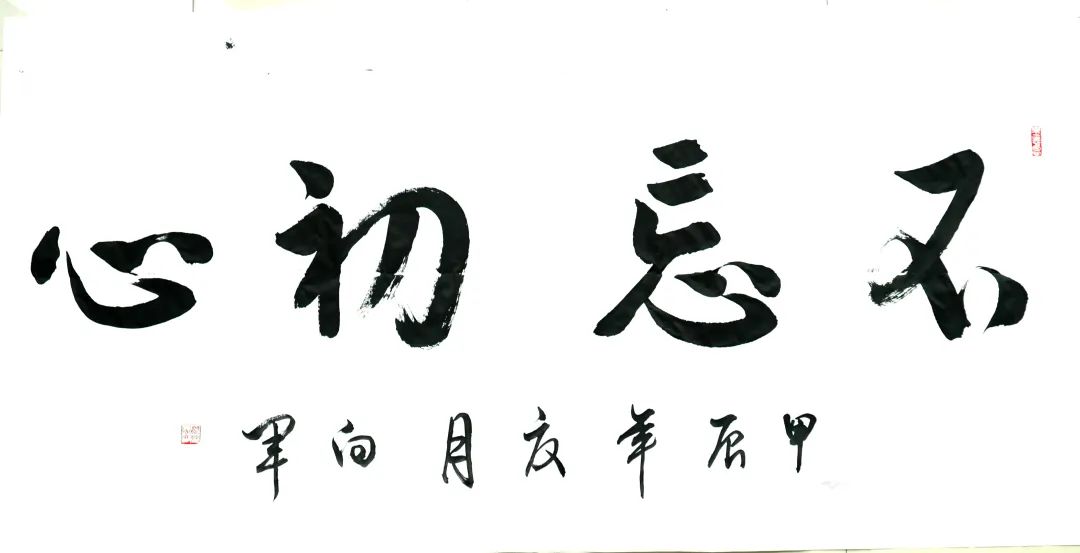 不忘初心
甲辰年夏月向军